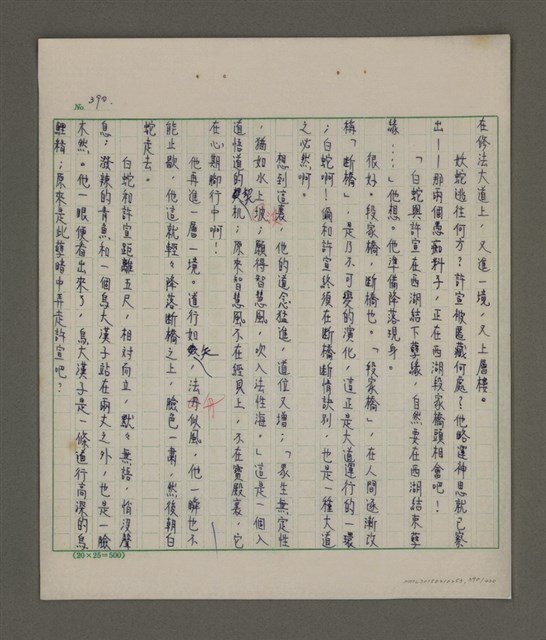 No. 390.
在修法大道上，又進一境，又上層樓。
妖蛇逃往何方？許宣被匿藏何處？他略運神思就已察
出——那兩個愚癡料子，正在西湖段家橋頭相會吧！
「白蛇與許宣在西湖結下孽緣，自然要在西湖結束孽
緣……」他想。他準備降落現身。
很好。段家橋，斷橋也。「段家橋」，在人間逐漸改
稱「斷橋」，是乃不可變的演化，這正是大道運行的一環
；白蛇啊！偏和許宣終須在斷橋斷情訣別，也是一種大道
之必然啊。
想到這裏，他的道念猛進，道位又增；「眾生無定性
，猶如水上波；願得智慧風，吹入法性海。」這是一個入
道悟道的契机；原來智慧風不在經貝上，不在寶殿裏，它
在心期腳行中啊！
他再進一層一境。道行如矢，法舟似風，他一瞬也不
能止歇，他這就輕々降落斷橋之上，臉色一肅，然後朝白
蛇走去。
白蛇和許宣距離五尺，相對向立，默々無語，悄沒聲
息；潑辣的青魚和一個烏大漢子站在兩丈之外，也是一臉
木然。他一眼便看出來了，烏大漢子是一條道行高深的烏
鯉精；原來是此孽暗中弄走許宣吧？
(20×25=500)